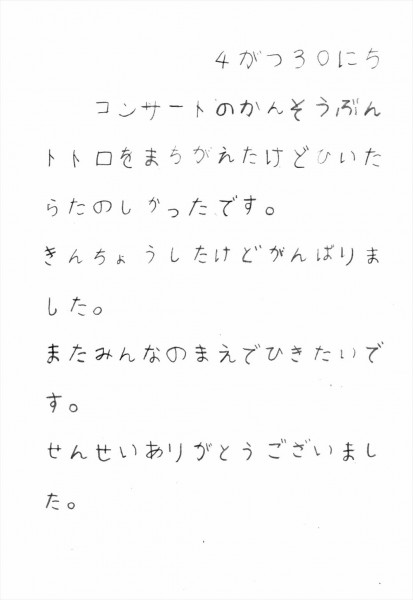 4がつ30にち
コンサートのかんそうぶん
トトロをまちがえたけどひいた
らたのしかったです。
きんちょうしたけどがんばりま
した。
またみんなのまえでひきたいで
す。
せんせいありがとうございまし
た。